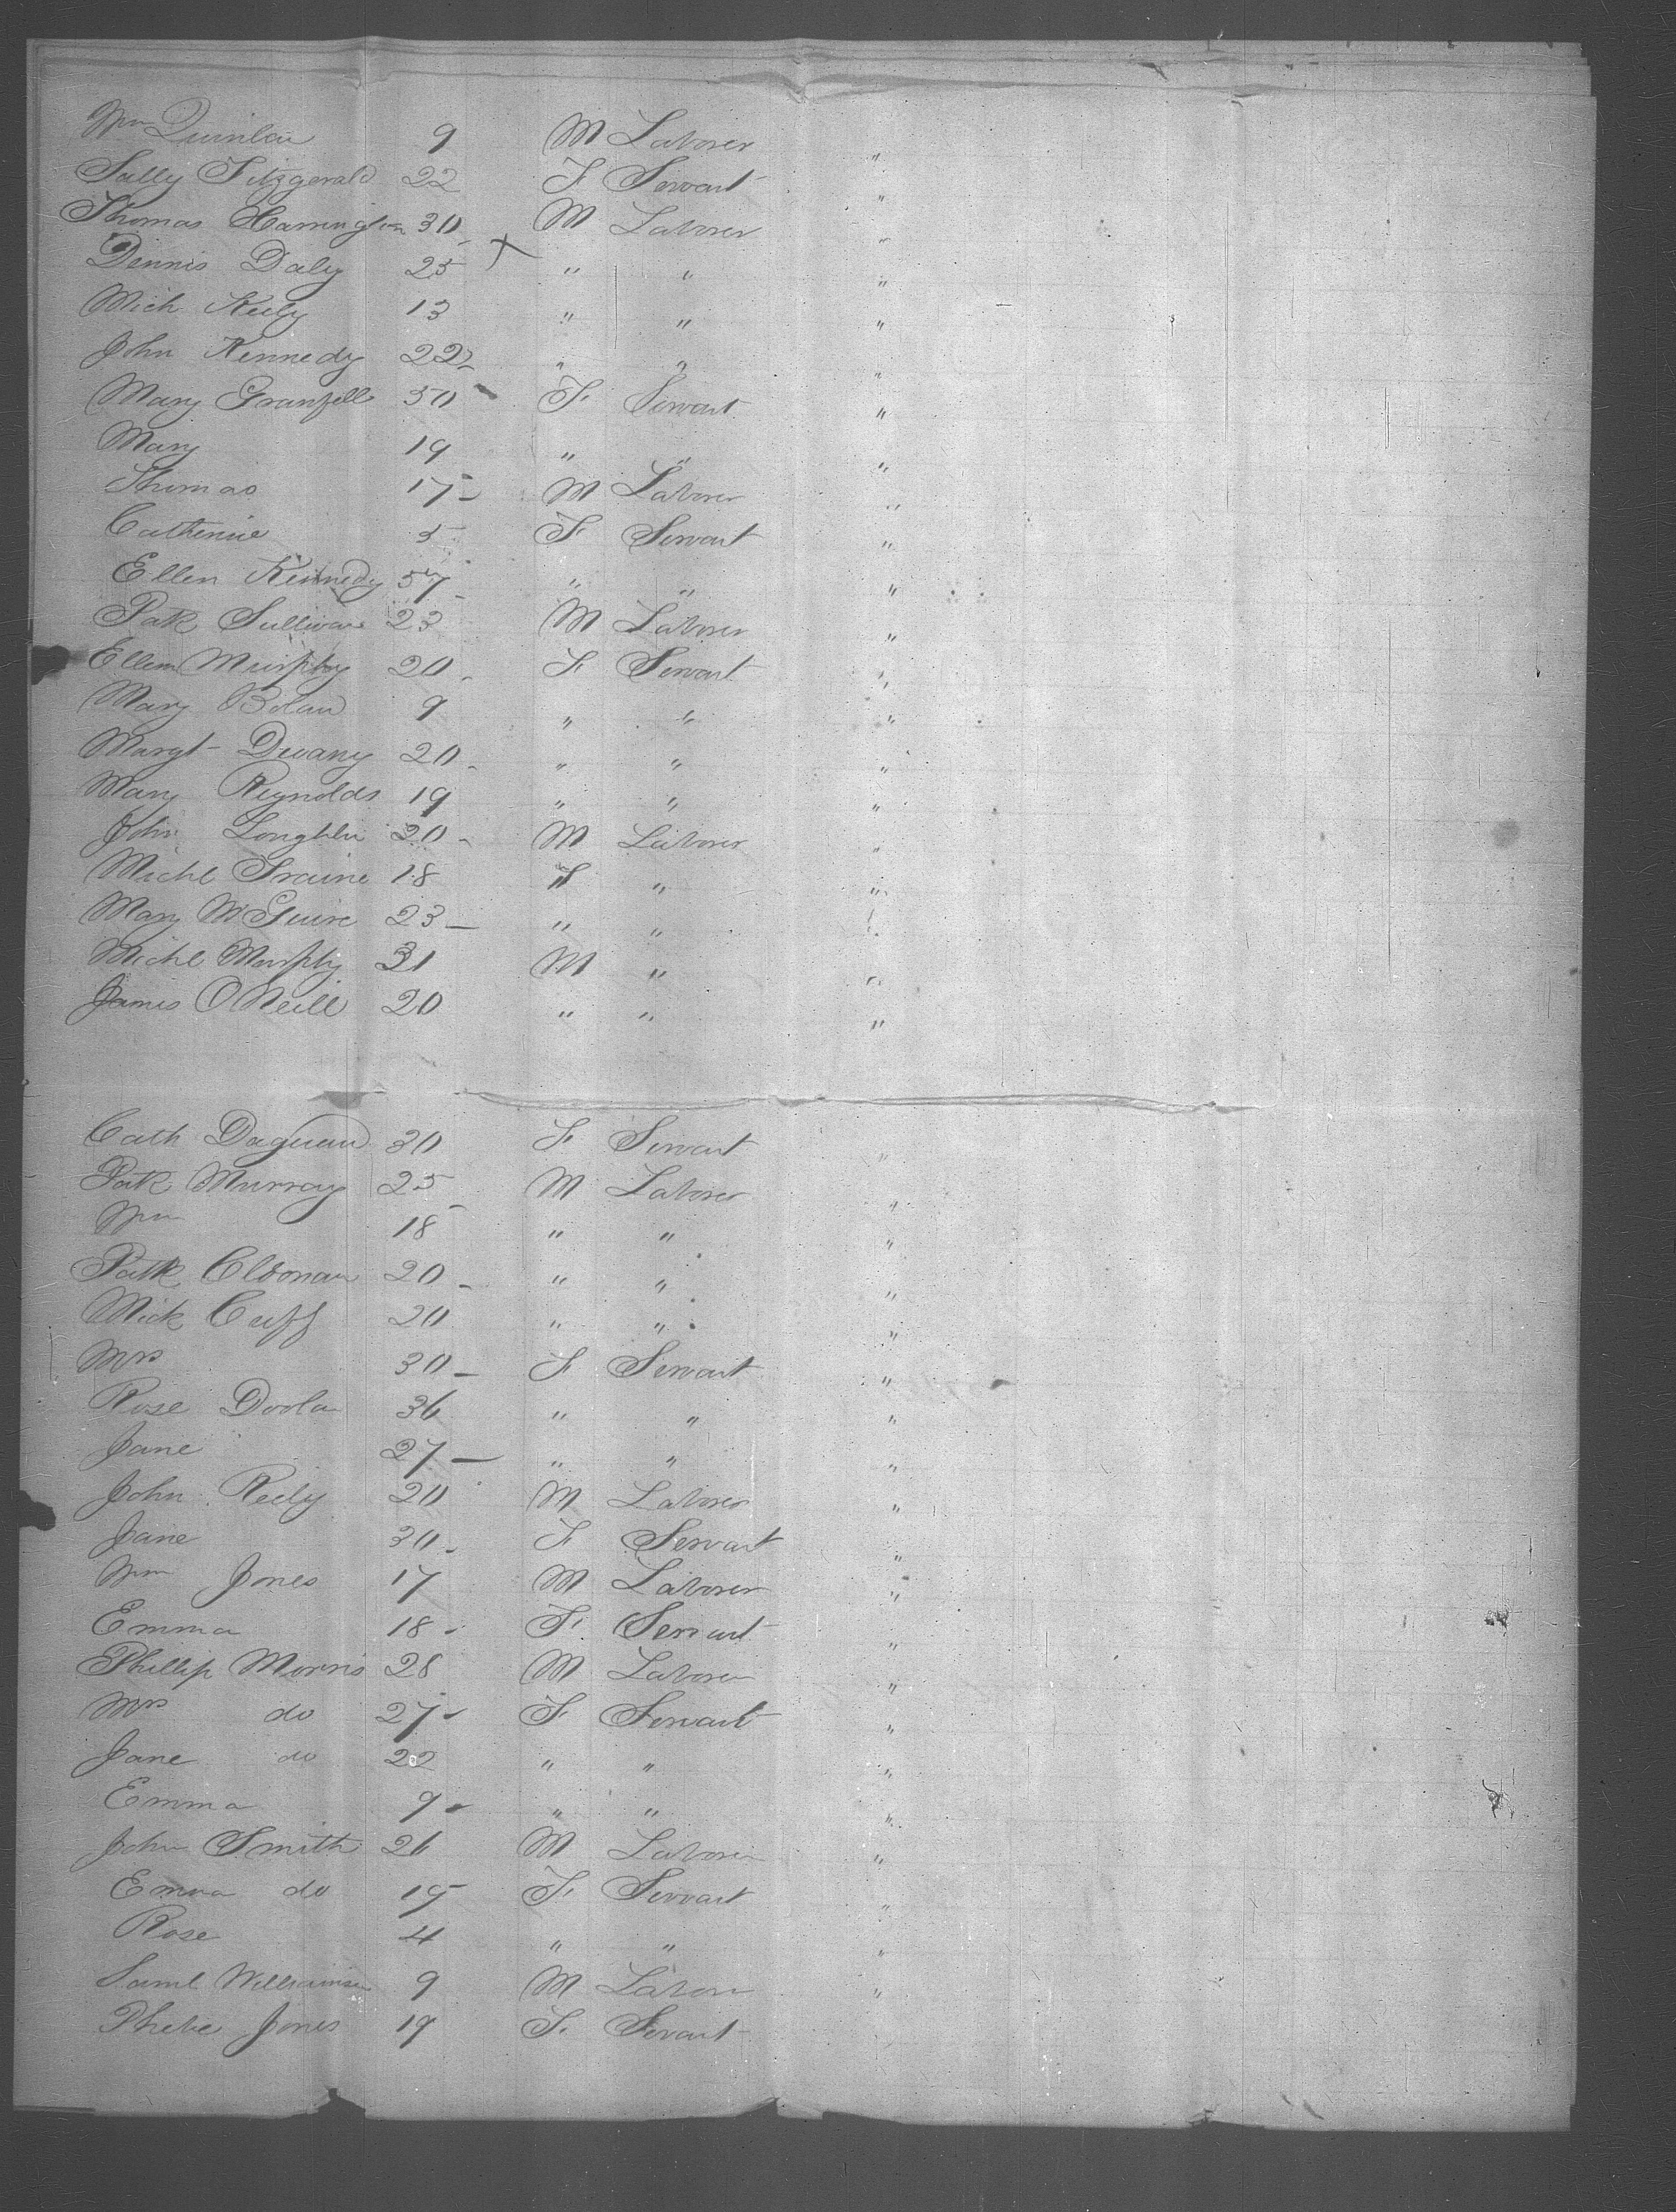 Wm Quinlan 9 M Laborer "
Sally Fitzgerald 22 F Servant "
Thomas Harrington 30 M Laborer "
Dennis Daly 25 " " "
Mich Kiely 13 " " "
John Kennedy 22 " " "
Mary Granfell 50 F Servant "
Mary 19 " " "
Thomas 17 M Laborer "
Catherine 5 F Servant "
Ellen Kennedy 57 " " "
Patk Sullivan 23 M Laborer "
Ellen Murphy 20 F Servant "
Mary Bolan 9 " " "
Margt Dwany 20 " " "
Mary Reynolds 19 " " "
John Loughlin 20 M Laborer "
Michl Fraine 18 " " "
Mary McGuire 23 " " "
Michl Murphy 31 M " "
James O'Neill 20 " " "
Cath 30 F Servant "
Patk Murray 25 M Laborer "
Wm 18 " " "
Patk 20 " " "
Mick Cuff 20 " " "
Mrs 30 F Servant "
Rose Doolan 36 " " "
Jane 27 " " "
John Reily 20 M Laborer "
Jane 30 F Servant "
Wm Jones 17 M Laborer "
Emma 18 F Servant "
Phillip Morris 28 M Laborer "
Mrs do 27 F Servant "
Jane do 22 " " "
Emma 9 " " "
John Smith 26 M Laborer "
Emma do 19 F Servant "
Rose 4 " " "
Saml Williamson 9 M Laborer "
Phebe Jones 19 F Servant